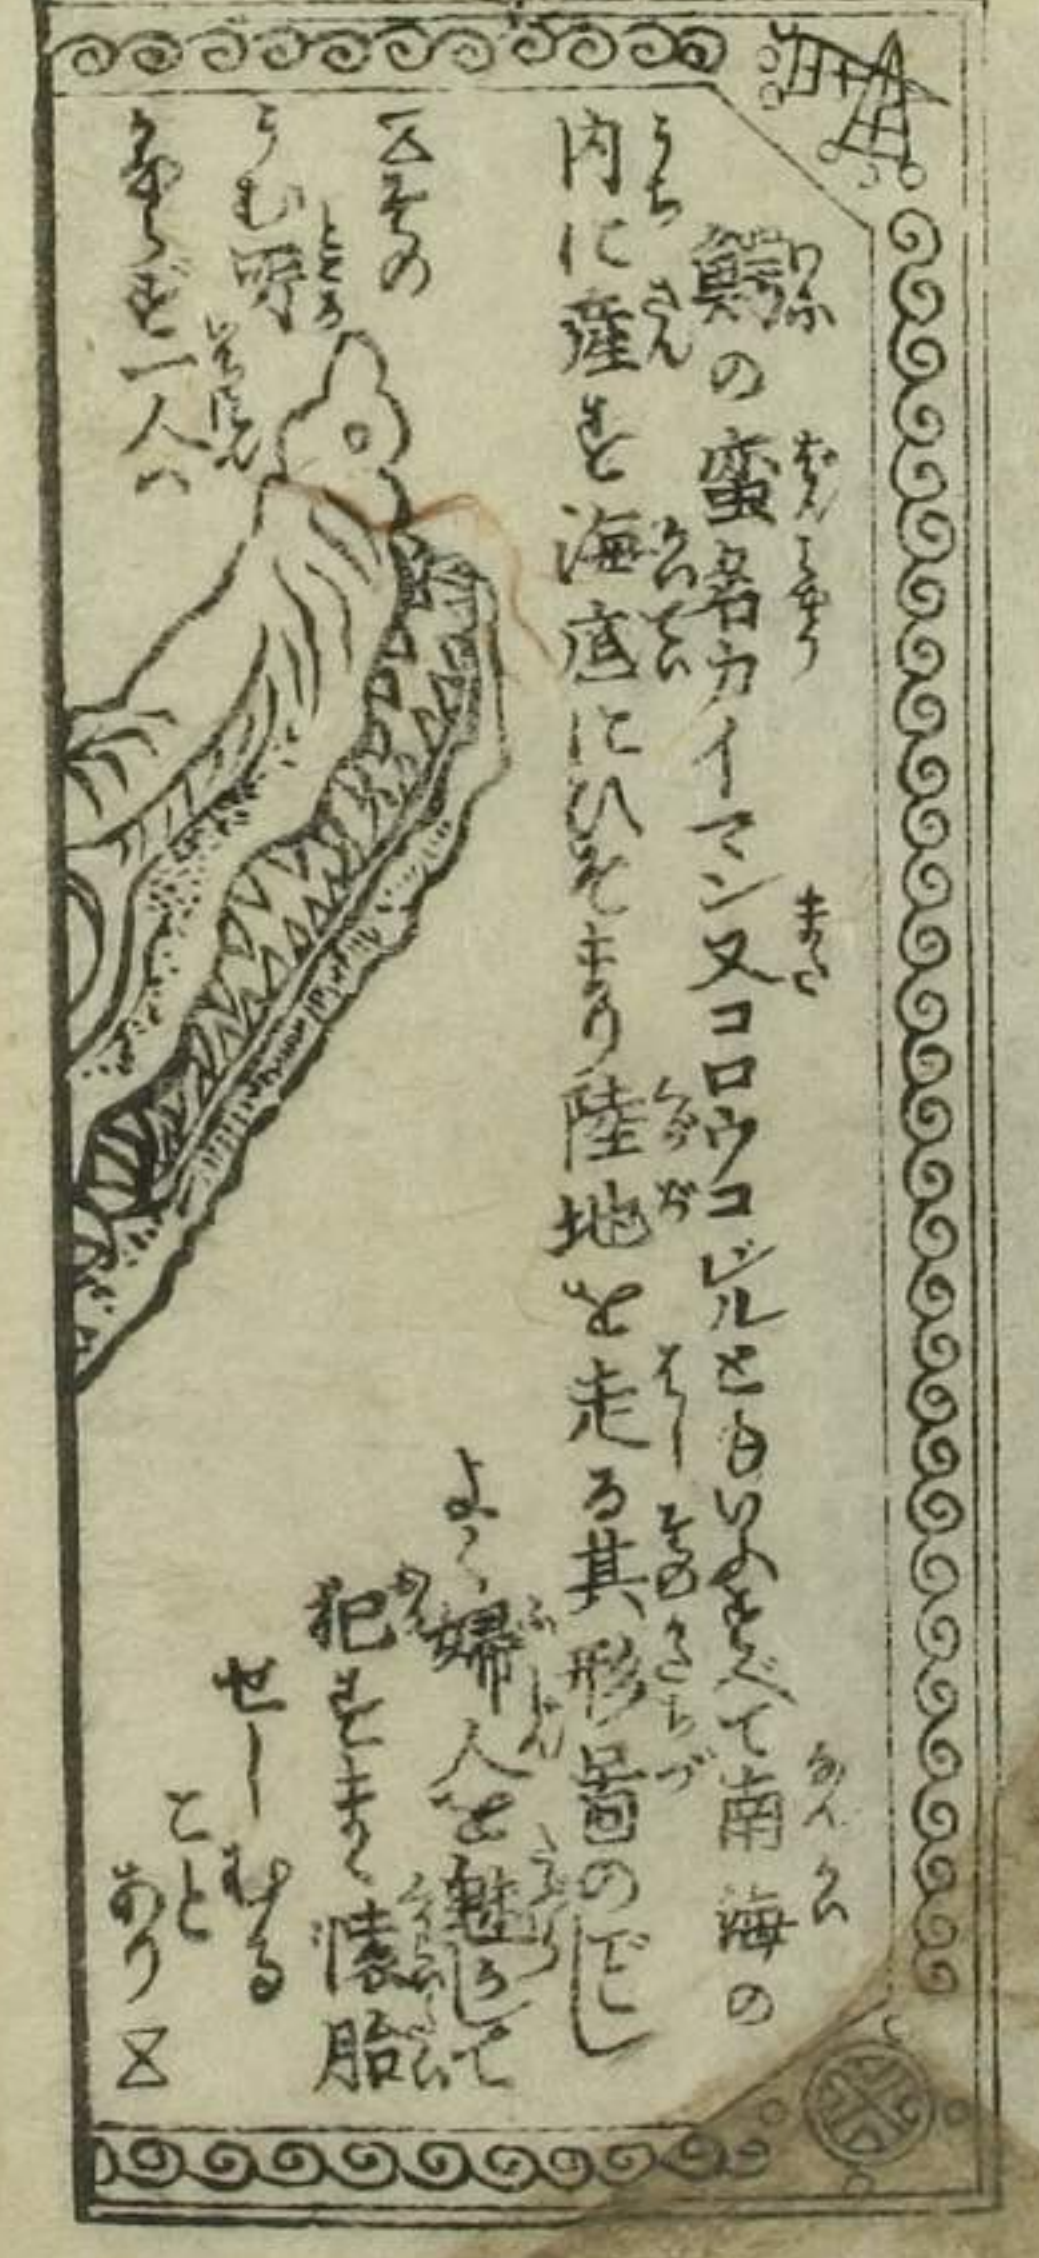 鰐の蛮名カイマン又コロウコヂルともいふすべて南海の
内に産す海底にひそまり陸地を走る其形啚のごとし
よく婦人を魅かして
犯すまゝ懐胎
せしむる
こと
あり
その
うむ所
かならず一人ハ